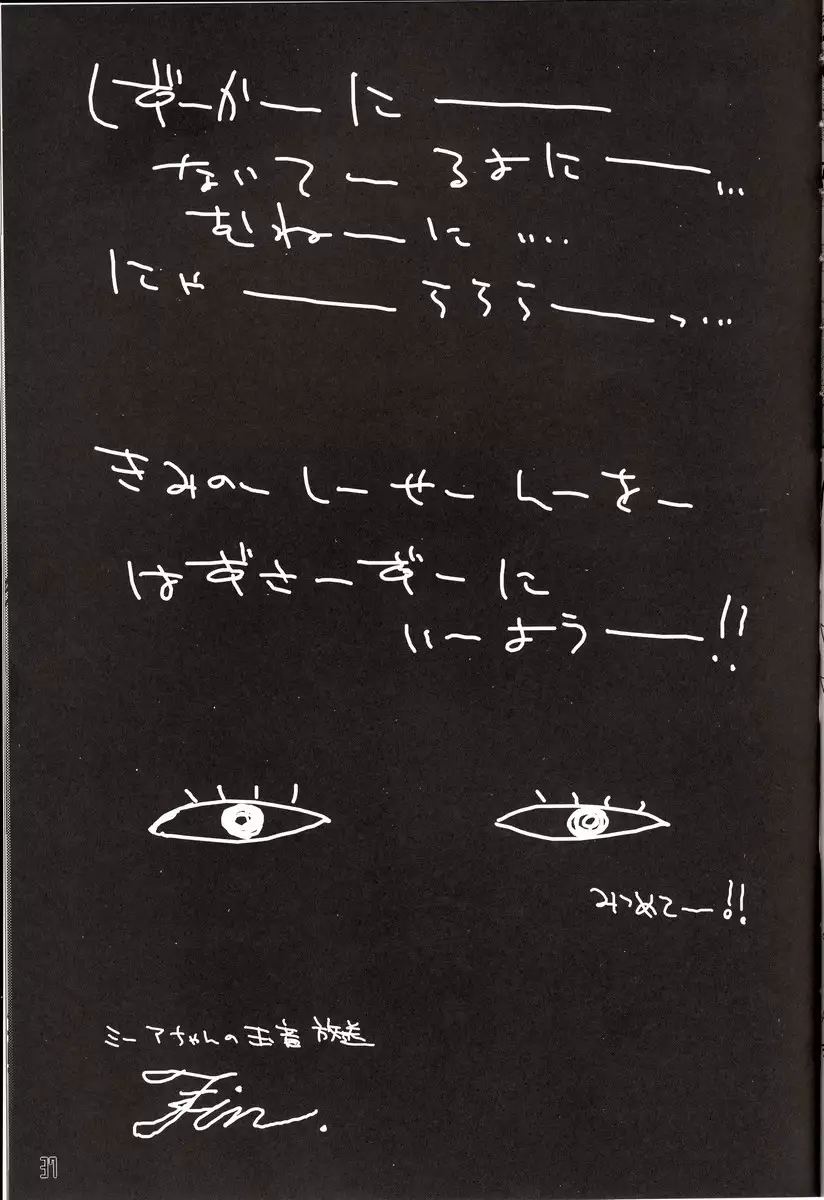 しずーかーに———
ないてーるよに——…
むねーに‥‥
にゃ——ららら——っ…
きみのーしーせーんーをー
はずさーずーに
いーよう——!!
みつめてー!!
ミーアちゃんの玉音放送
Fin.
37